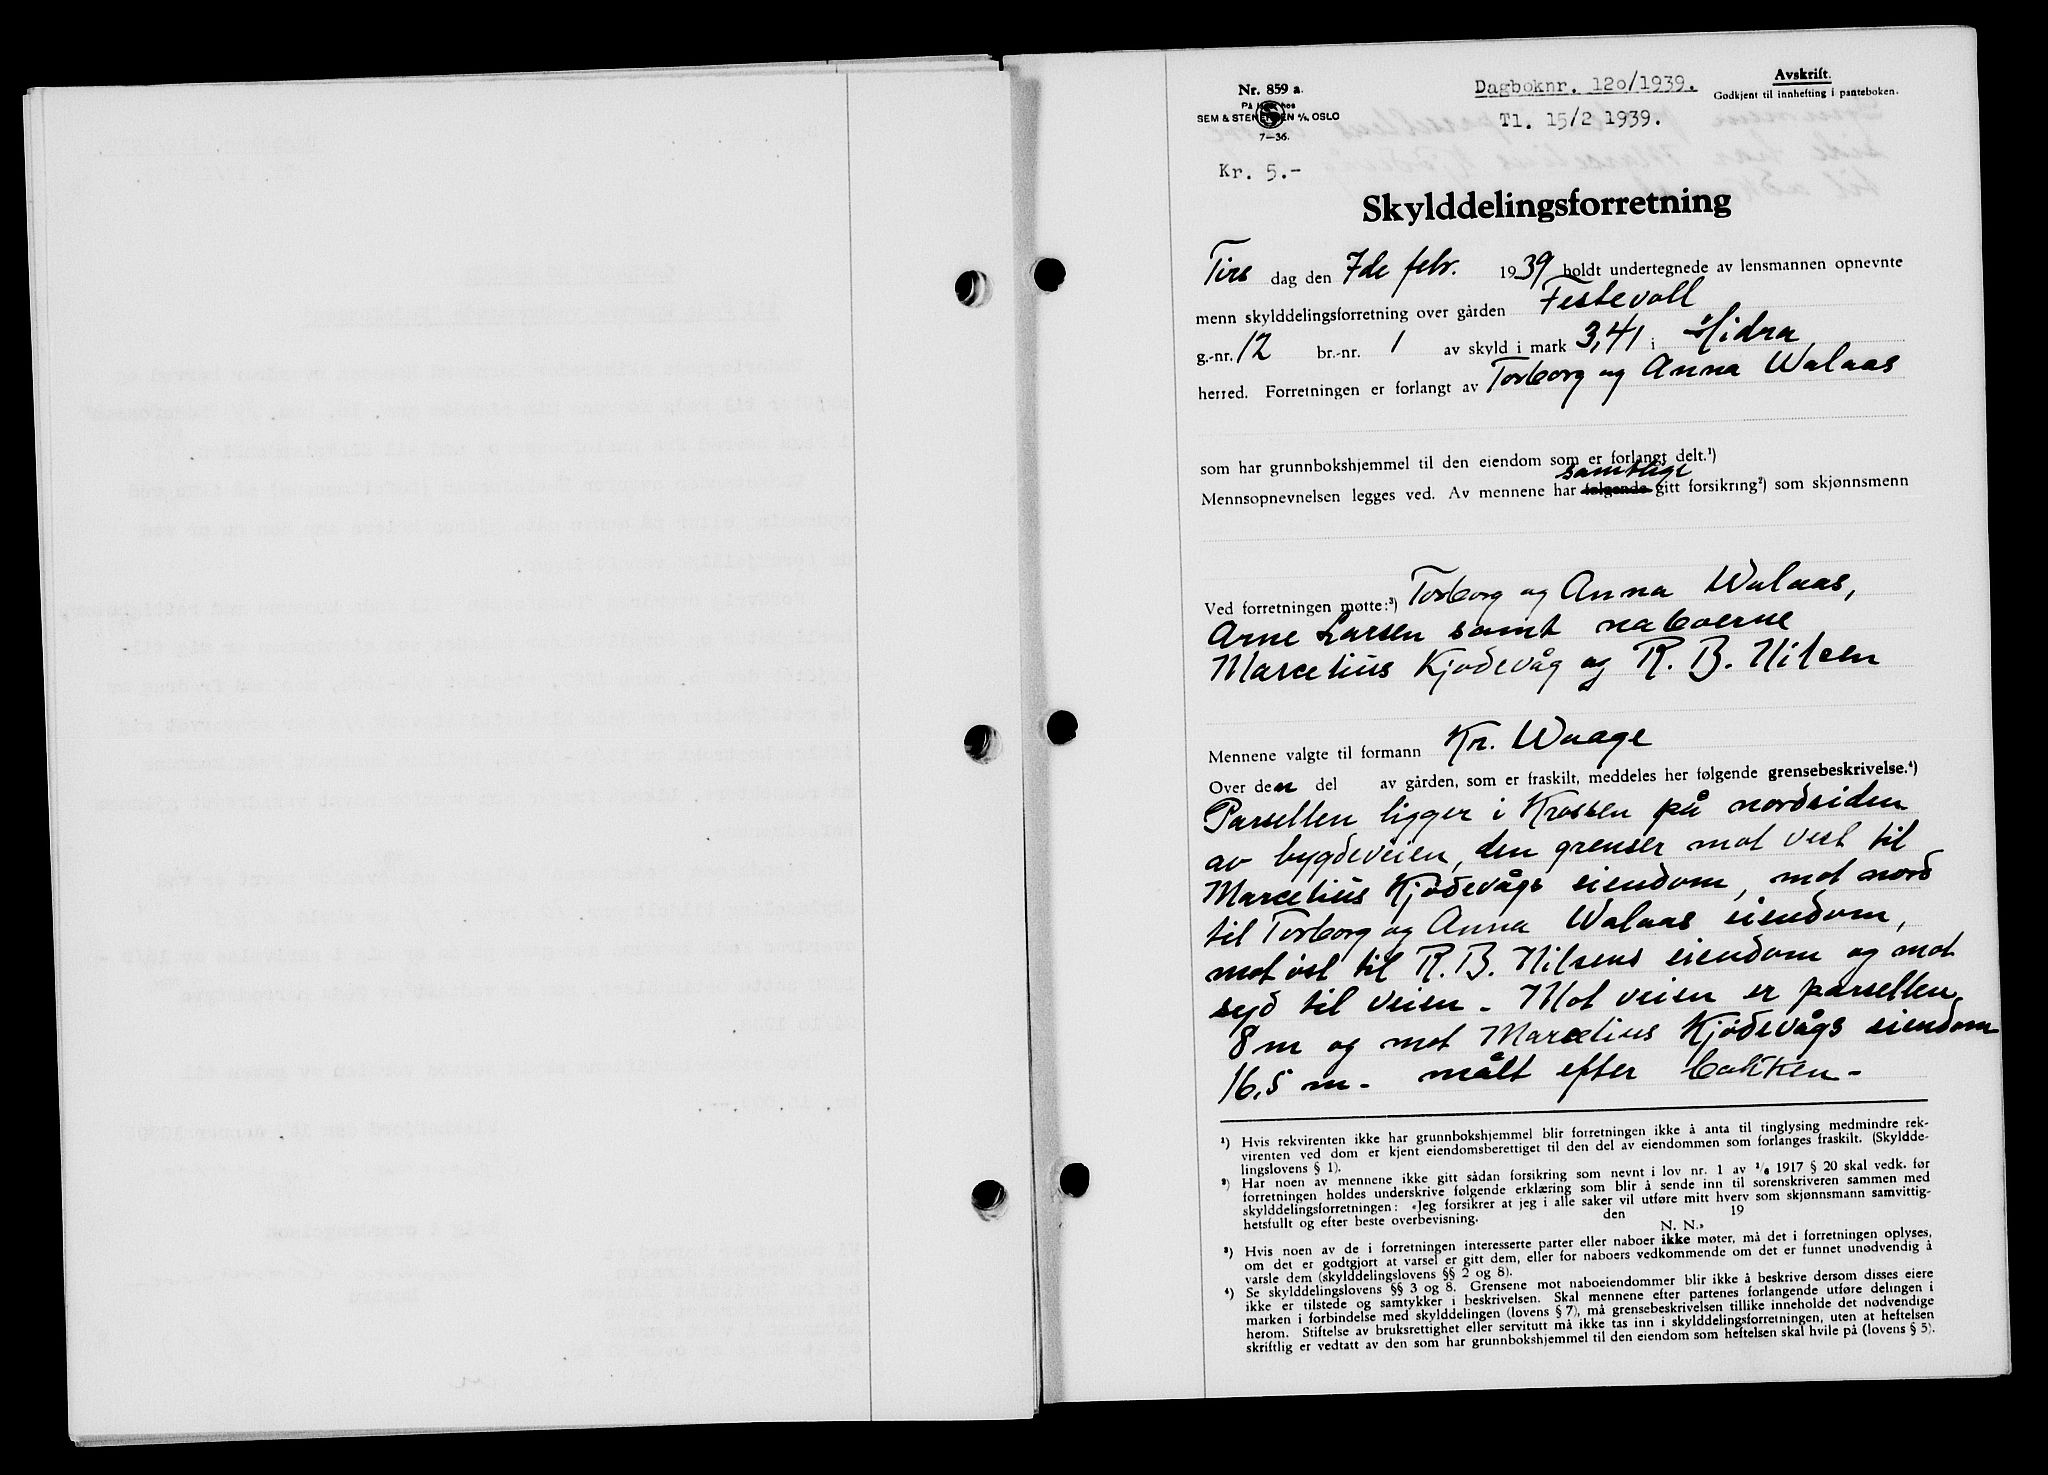 Nr. 859 a.
På lager hos
SEM & STENERSEN A/S, OSLO
7—36.
Dagboknr. 120/1939.
Tl. 15/2 1939.
Avskrift.
Godkjent til innhefting i panteboken.
Kr. 5.-
Skylddelingsforretning
Tirs dag den 7de febr. 1939 holdt undertegnede av lensmannen opnevnte
menn skylddelingsforretning over gården Festevoll
g.-nr. 12 br.-nr. 1 av skyld i mark 3,41 i Hidra
herred. Forretningen er forlangt av Torborg og Anna Walaas
som har grunnbokshjemmel til den eiendom som er forlangt delt.¹)
samtlige
Mennsopnevnelsen legges ved. Av mennene har følgende gitt forsikring²) som skjønnsmenn
Ved forretningen møtte:³) Torborg og Anna Walaas,
Arne Larsen samt naboerne
Marcelius Kjødevåg og R. B. Nilsen
Mennene valgte til formann Kr. Waage
Over den del av gården, som er fraskilt, meddeles her følgende grensebeskrivelse.⁴)
Parsellen ligger i Krossen på nordsiden
av bygdeveien, den grenser mot vest til
Marcelius Kjødevågs eiendom, mot nord
til Torborg og Anna Walaas eiendom,
mot øst til R. B. Nilsens eiendom og mot
syd til veien - Mot veien er parsellen
8 m og mot Marcelius Kjødevågs eiendom
16,5 m - målt efter bakken -
¹) Hvis rekvirenten ikke har grunnbokshjemmel blir forretningen ikke å anta til tinglysing medmindre rek-
virenten ved dom er kjent eiendomsberettiget til den del av eiendommen som forlanges fraskilt. (Skyldde-
lingslovens § 1).
²) Har noen av mennene ikke gitt sådan forsikring som nevnt i lov nr. 1 av ¹/₆ 1917 § 20 skal vedk. før
forretningen holdes underskrive følgende erklæring som blir å sende inn til sorenskriveren sammen med
skylddelingsforretningen: «Jeg forsikrer at jeg i alle saker vil utføre mitt hverv som skjønnsmann samvittig-
hetsfullt og efter beste overbevisning. den 19
N. N.»
³) Hvis noen av de i forretningen interesserte parter eller naboer ikke møter, må det i forretningen oplyses,
om det er godtgjort at varsel er gitt dem, eller for naboers vedkommende om det er funnet unødvendig å
varsle dem (skylddelingslovens §§ 2 og 8).
⁴) Se skylddelingslovens §§ 3 og 8. Grensene mot naboeiendommer blir ikke å beskrive dersom disses eiere
ikke er tilstede og samtykker i beskrivelsen. Skal mennene efter partenes forlangende utføre delingen i
marken i forbindelse med skylddelingen (lovens § 7), må grensebeskrivelsen tillike inneholde det nødvendige
herom. Stiftelse av bruksrettighet eller servitutt må ikke tas inn i skylddelingsforretningen, uten at heftelsen
skriftlig er vedtatt av den som har grunnbokshjemmel til den eiendom som heftelsen skal hvile på (lovens § 5).